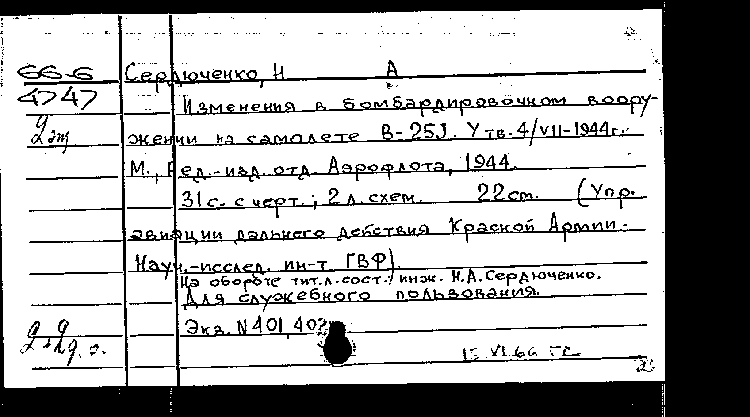 66-6
4747
Сердюченко, Н А
Изменения в бомбардировочном воору-
жении на самолете B-25J. Утв. 4/VII-1944г.
М., Ред.-изд. отд. Аэрофлота, 1944.
31 с. с черт.; 2 л. схем. 22 см. (Упр.
авиации дальнего действия Красной Армии.
Науч.-исслед. ин-т ГВФ).
На обороте тит.л. сост.: инж. Н.А.Сердюченко.
Для служебного пользования.
Экз. N 401, 402